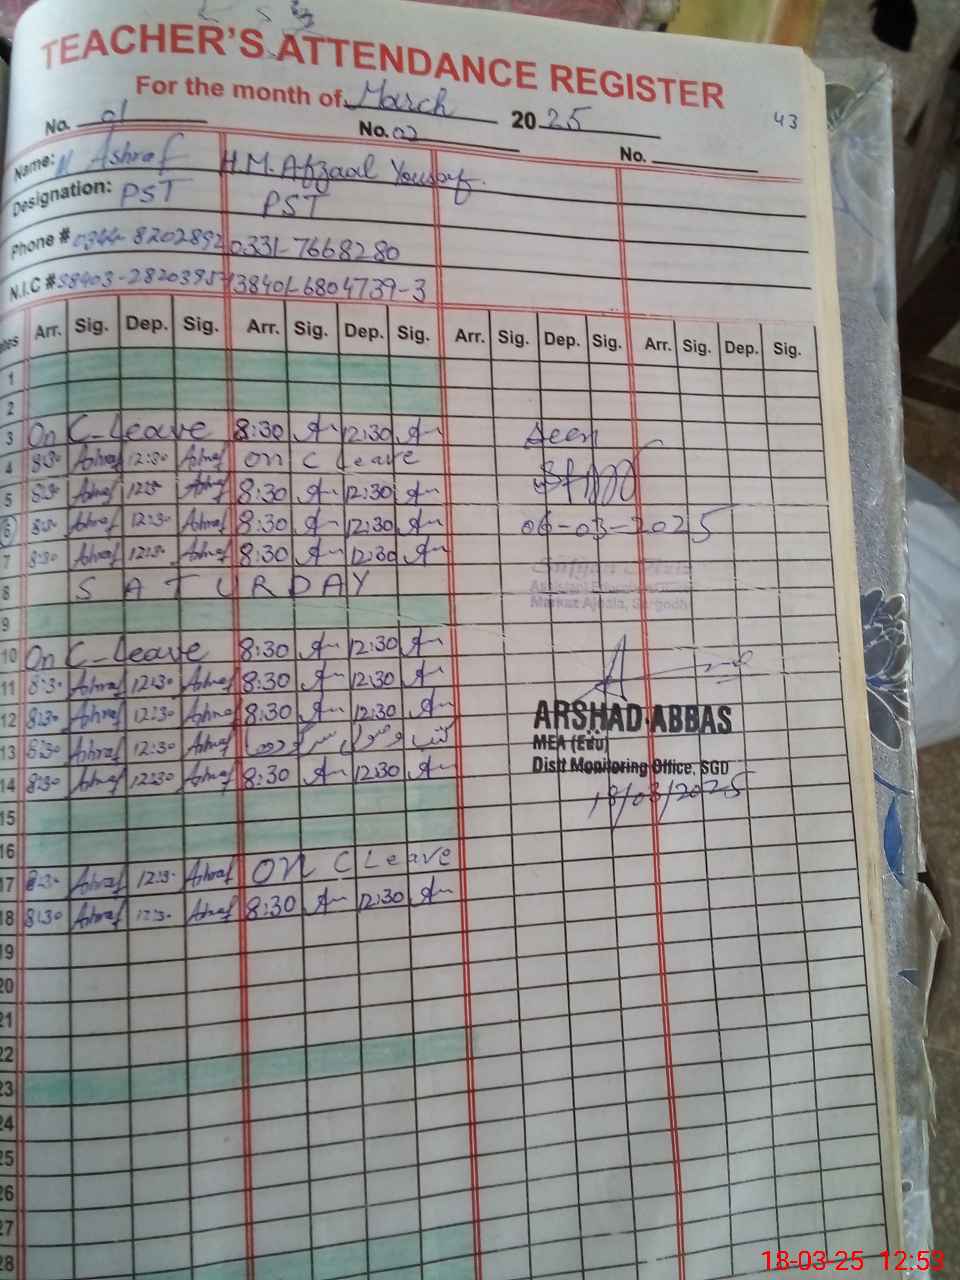 TEACHER'S ATTENDANCE REGISTER
For the month of March 2025
43
No. 01 No. 02 No.
Name: Ashraf H.M. Afzaal Yousaf.
Designation: PST PST
Phone # 0344-8202892 0331-7668280
N.I.C # 38401-6804739-3
Arr. Sig. Dep. Sig. Arr. Sig. Dep. Sig. Arr. Sig. Dep. Sig. Arr. Sig. Dep. Sig.
1
2
3 On C-Leave 8:30 12:30 Seen
4 8:30 Ashraf 12:30 Ashraf On C Leave
5 8:30 Ashraf 12:30 Ashraf 8:30 12:30
6 8:30 Ashraf 12:30 Ashraf 8:30 12:30 06-03-2025
7 8:30 Ashraf 12:30 Ashraf 8:30 12:30
8 SATURDAY
9
10 On C-Leave 8:30 12:30
11 8:30 Ashraf 12:30 Ashraf 8:30 12:30
12 8:30 Ashraf 12:30 Ashraf 8:30 12:30
ARSHAD ABBAS
MEA (Edu)
Distt Monitoring Office, SGD
18/03/2025
13 8:30 Ashraf 12:30 Ashraf
14 8:30 Ashraf 12:30 Ashraf 8:30 12:30
15
16
17 8:30 Ashraf 12:30 Ashraf ON C Leave
18 8:30 Ashraf 12:30 Ashraf 8:30 12:30
19
20
21
22
23
24
25
26
27
28
18-03-25 12:53